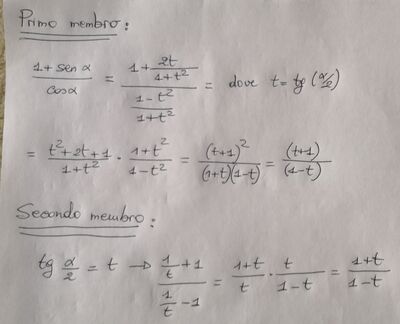 Primo membro:
1+sen α / cosα = (1+ 2t/(1+t²)) / ((1-t²)/(1+t²)) = dove t= tg (α/2)
= (t²+2t+1)/(1+t²) · (1+t²)/(1-t²) = (t+1)²/((1+t)(1-t)) = (t+1)/(1-t)
Secondo membro:
tg α/2 = t → (1/t +1)/(1/t -1) = (1+t)/t · t/(1-t) = (1+t)/(1-t)